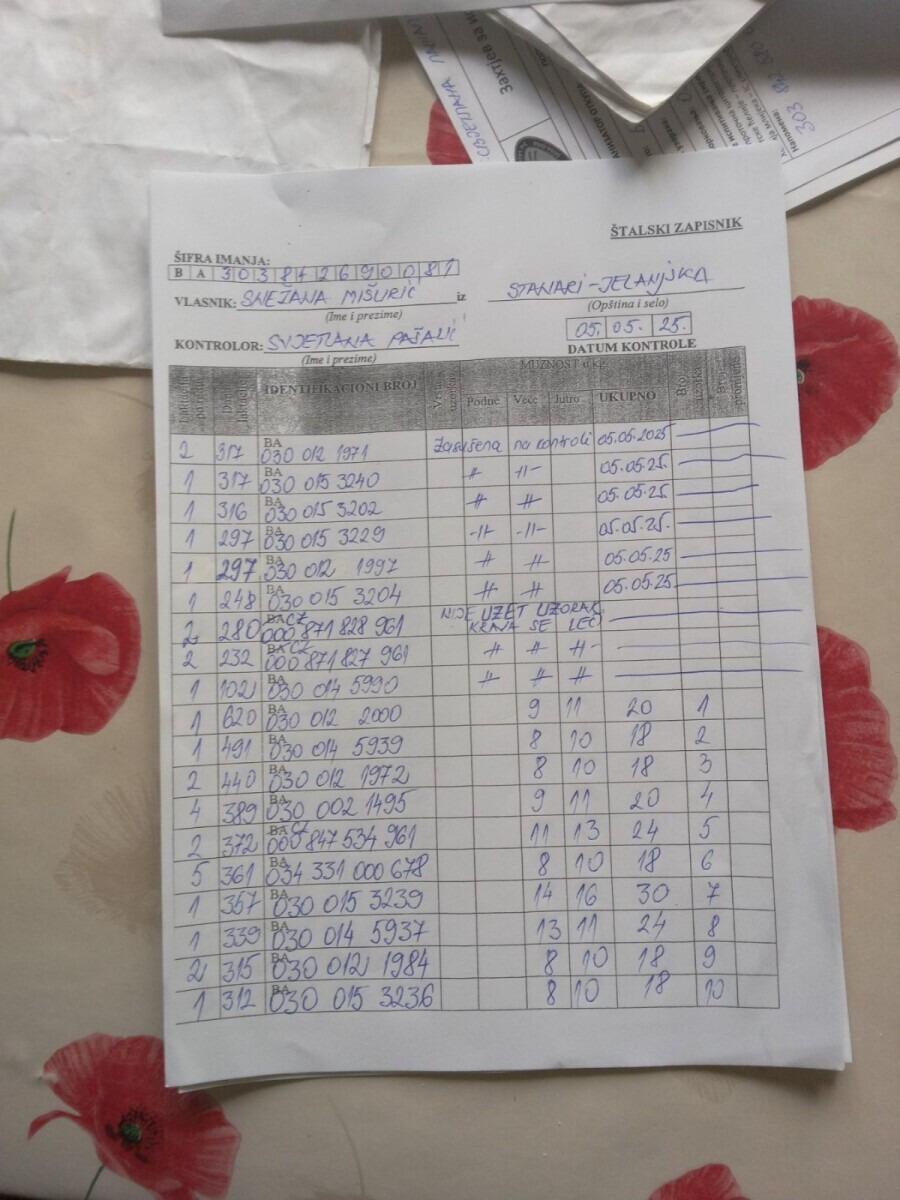 Захтјев за
303
Напомена:
ŠTALSKI ZAPISNIK
ŠIFRA IMANJA:
B A 3 0 3 8 7 2 6 9 0 0 8 1
VLASNIK: SNEŽANA MIŠURIĆ iz STANARI-JELANJSKA
(Ime i prezime) (Opština i selo)
KONTROLOR: SVJETLANA PAŠALIĆ 05. 05. 25.
(Ime i prezime) DATUM KONTROLE
IDENTIFIKACIONI BROJ MUZNOST u kg
Podne Veče Jutro UKUPNO Broj
2 317 BA 030 012 1971 Zasušena na kontroli 05.05.2025
1 317 BA 030 015 3240 -11- -11- 05.05.25.
1 316 BA 030 015 3202 -11- -11- 05.05.25.
1 297 BA 030 015 3229 -11- -11- 05.05.25.
1 297 BA 030 012 1997 -11- -11- 05.05.25
1 248 BA 030 015 3204 -11- -11- 05.05.25.
2 280 BA CZ 000 871 828 961 NIJE UZET UZORAK KRAVA SE LEČI
2 232 BA CZ 000 871 827 961 -11- -11- -11-
1 102 BA 030 014 5990 -11- -11- -11-
1 620 BA 030 012 2000 9 11 20 1
1 491 BA 030 014 5939 8 10 18 2
2 440 BA 030 012 1972 8 10 18 3
4 389 BA 030 002 1495 9 11 20 4
2 372 BA CZ 000 847 534 961 11 13 24 5
5 361 BA 034 331 000 678 8 10 18 6
1 357 BA 030 015 3239 14 16 30 7
1 339 BA 030 014 5937 13 11 24 8
2 315 BA 030 012 1984 8 10 18 9
1 312 BA 030 015 3236 8 10 18 10